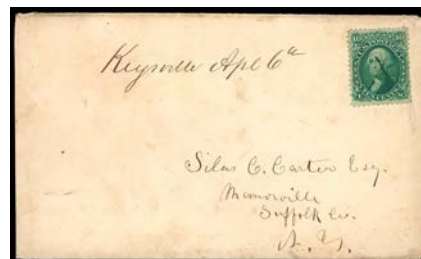 Keysville Apl 6th
10 10
Silas C. Carter Esq.
Manorville
Suffolk Co.
N. Y.